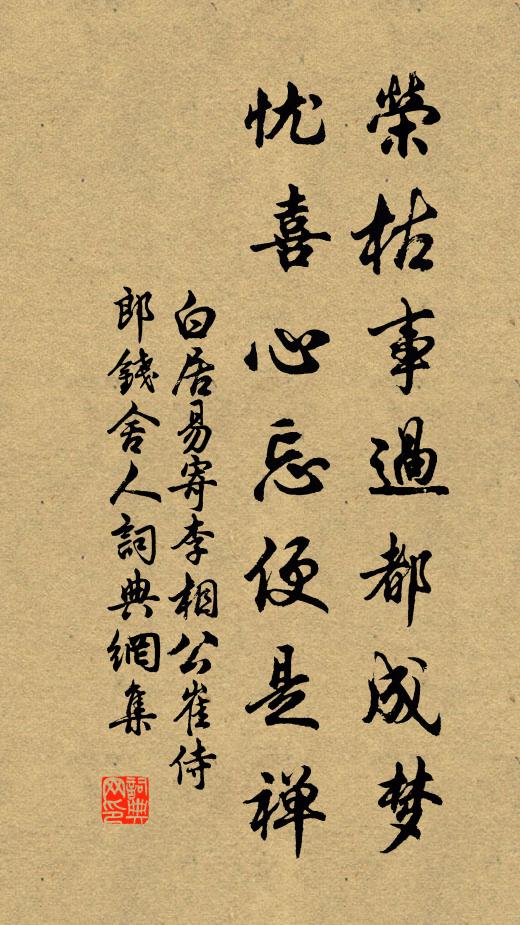 榮枯事過都成梦
忧喜心忘便是禅
白居易寄李相公崔侍
郎錢舍人詞典網集
詞典
网印